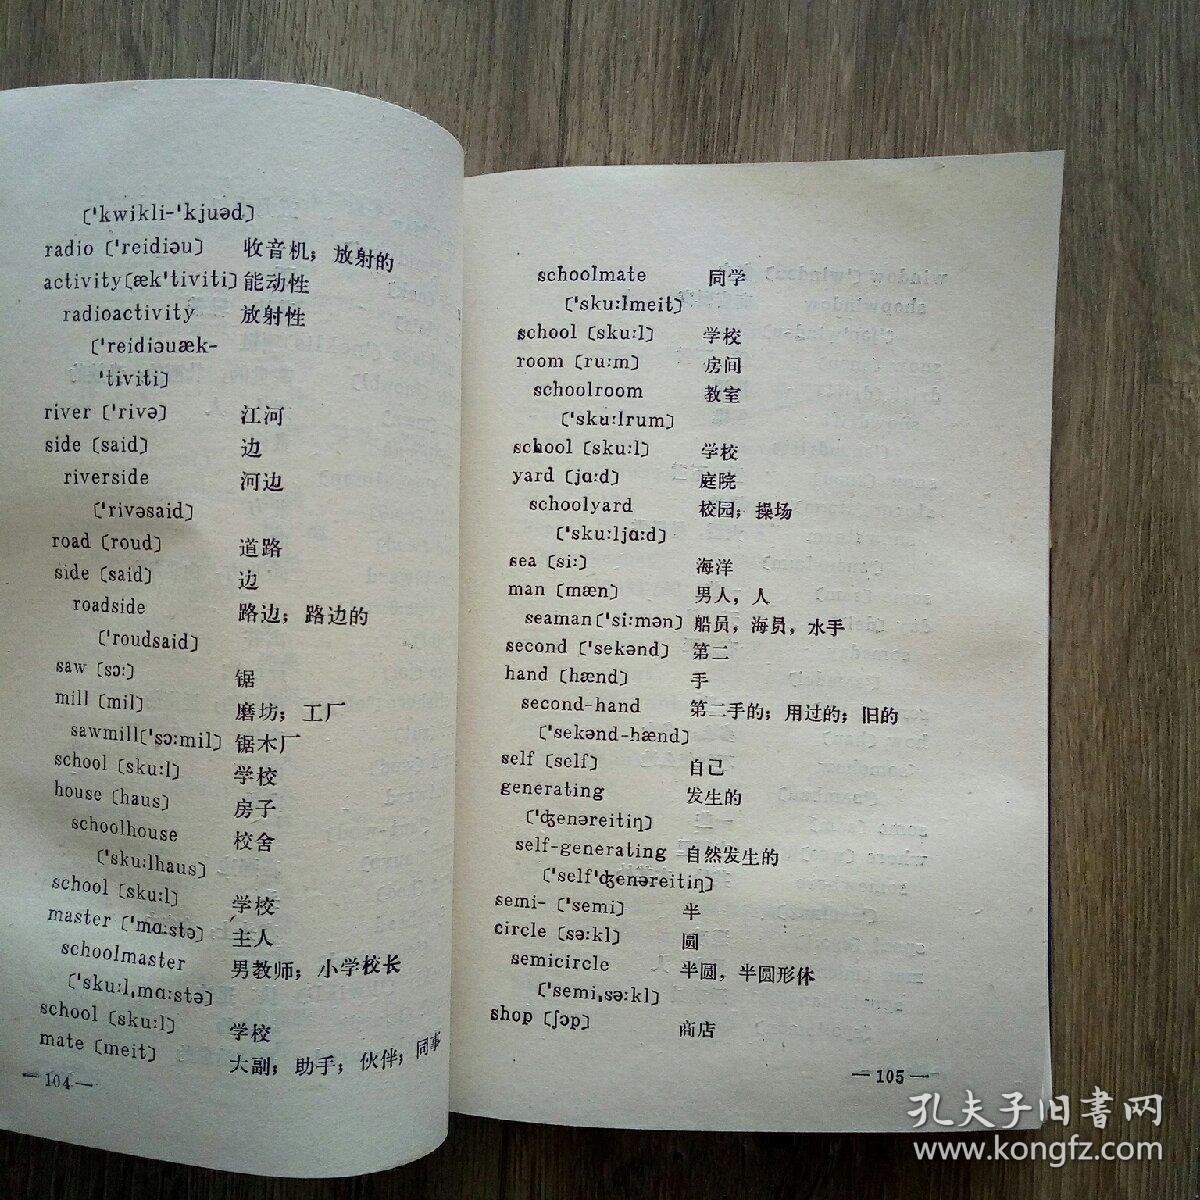 〔'kwikli-'kjuəd〕
radio〔'reidiəu〕 收音机；放射的
activity〔æk'tiviti〕能动性
radioactivity 放射性
〔'reidiəuæk-
'tiviti〕
river〔'rivə〕 江河
side〔said〕 边
riverside 河边
〔'rivəsaid〕
road〔roud〕 道路
side〔said〕 边
roadside 路边；路边的
〔'roudsaid〕
saw〔sɔ:〕 锯
mill〔mil〕 磨坊；工厂
sawmill〔'sɔ:mil〕锯木厂
school〔sku:l〕 学校
house〔haus〕 房子
schoolhouse 校舍
〔'sku:lhaus〕
school〔sku:l〕 学校
master〔'mɑ:stə〕 主人
schoolmaster 男教师；小学校长
〔'sku:l,mɑ:stə〕
school〔sku:l〕 学校
mate〔meit〕 大副；助手；伙伴；同事
—104—
schoolmate 同学
〔'sku:lmeit〕
school〔sku:l〕 学校
room〔ru:m〕 房间
schoolroom 教室
〔'sku:lrum〕
school〔sku:l〕 学校
yard〔jɑ:d〕 庭院
schoolyard 校园；操场
〔'sku:ljɑ:d〕
sea〔si:〕 海洋
man〔mæn〕 男人，人
seaman〔'si:mən〕船员，海员，水手
second〔'sekənd〕 第二
hand〔hænd〕 手
second-hand 第二手的；用过的；旧的
〔'sekənd-hænd〕
self〔self〕 自己
generating 发生的
〔'ʤenəreitiŋ〕
self-generating 自然发生的
〔'self'ʤenəreitiŋ〕
semi-〔'semi〕 半
circle〔sə:kl〕 圆
semicircle 半圆，半圆形体
〔'semi,sə:kl〕
shop〔ʃɔp〕 商店
—105—
孔夫子旧书网
www.kongfz.com